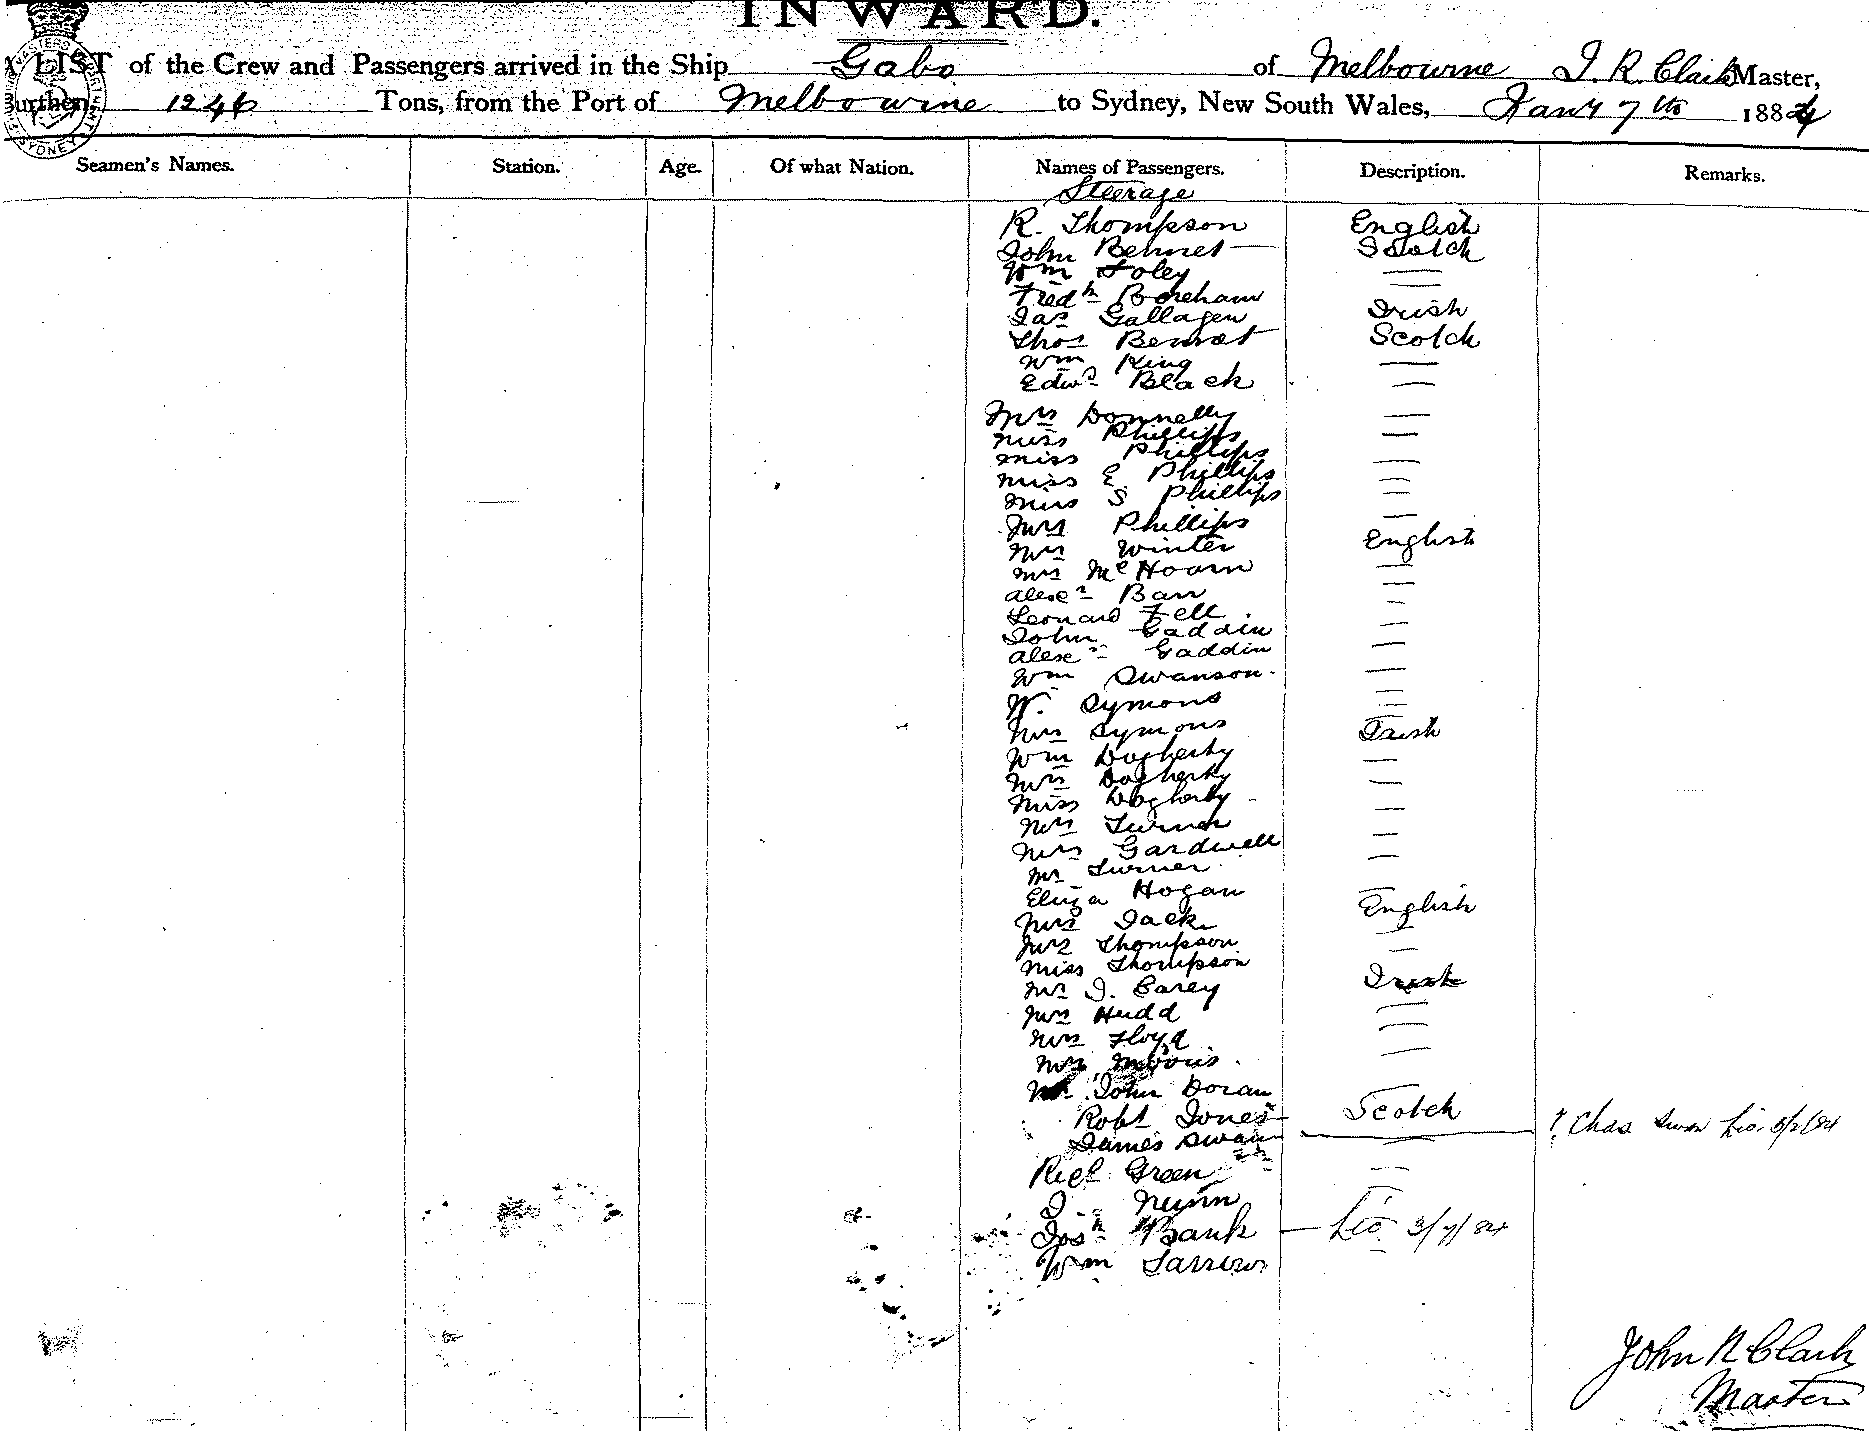 INWARD.
A LIST of the Crew and Passengers arrived in the Ship Gabo of Melbourne J. R. Clark Master,
Burthen, 1246 Tons, from the Port of Melbourne to Sydney, New South Wales, Jany 7th 1884
Seamen's Names. Station. Age. Of what Nation. Names of Passengers. Description. Remarks.
Steerage
R. Thompson English
John Bennet Scotch
Wm Foley —
Fredk Boreham —
Jas Gallagen Irish
Thos Bennet Scotch
Wm King —
Edwd Black —
Mrs Donnelly —
Miss Phillips —
Miss Phillips —
Miss E Phillips —
Miss S Phillips —
Mrs Phillips —
Mrs Winter English
Mrs McHoarn —
Alexr Barr —
Leonard Fell —
John Gaddin —
Alexr Gaddin —
Wm Swanson. —
W. Symons —
Mrs Symons Irish
Wm Dogherty —
Mrs Dogherty —
Miss Dogherty —
Mrs Turner —
Mrs Gardwell —
Mr Turner —
Eliza Hogan English
Mrs Jack
Mrs Thompson —
Miss Thompson —
Mr J. Carey Irish
Mrs Hudd —
Mrs Floyd —
Mrs Morris —
Mr John Doran —
Robt Jones Scotch
James Swan — ? Chas Swan Lio. 6/2/84
Richd Green —
J. —
Josh Bank — Lio 3/7/84
Wm
John R Clark
Master